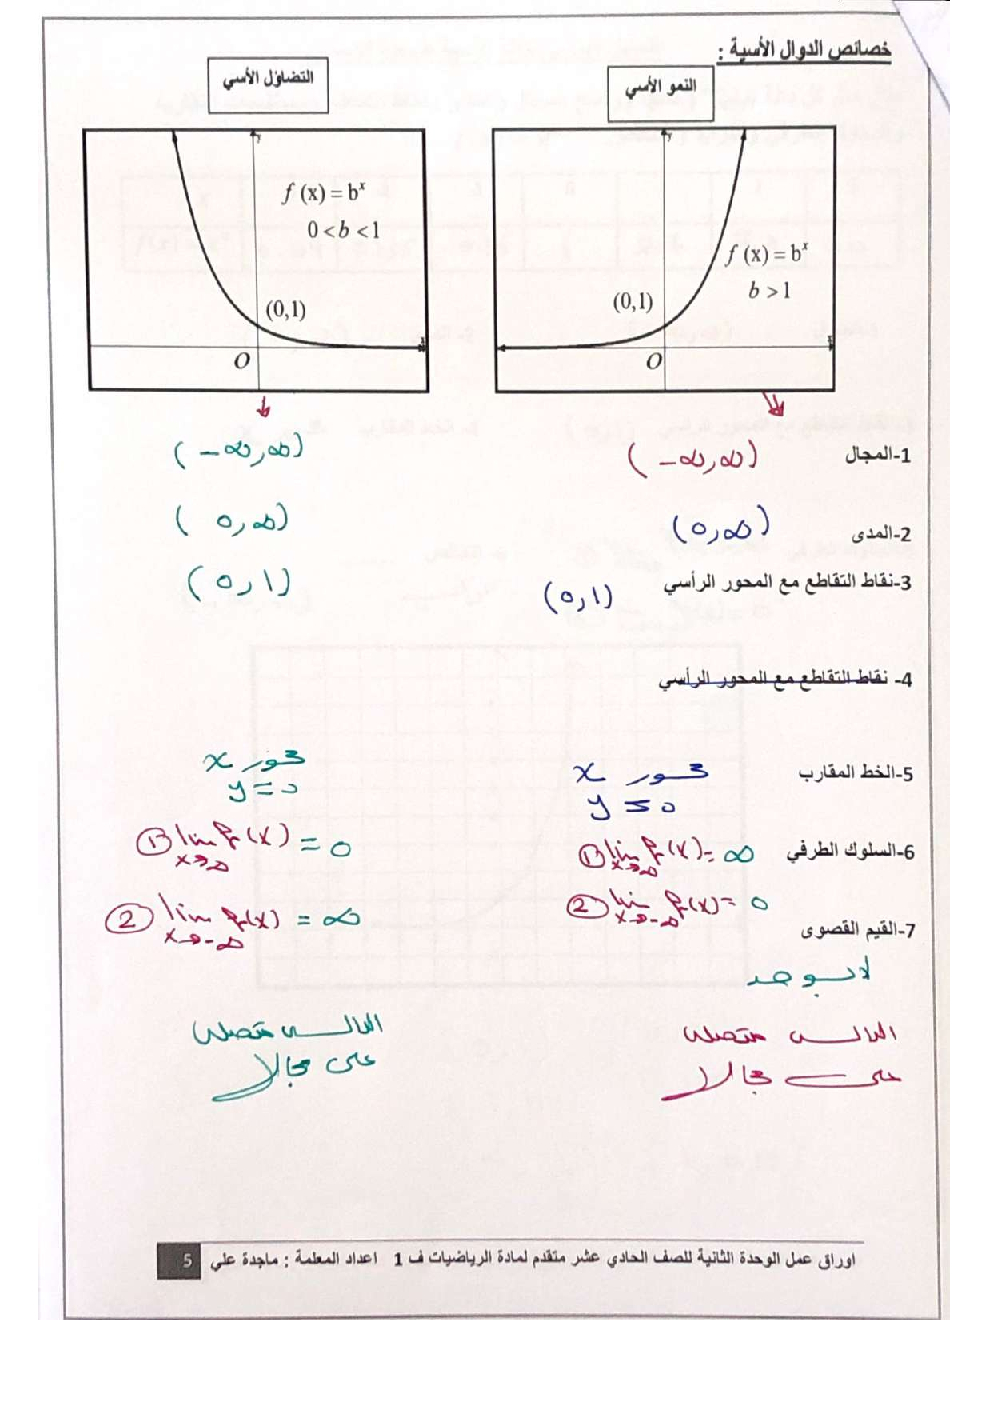 خصائص الدوال الأسية :
النمو الأسي
التضاؤل الأسي
y
f (x) = bˣ
b > 1
(0,1)
O
y
f (x) = bˣ
0 < b < 1
(0,1)
O
1-المجال
(-∞,∞)
(-∞,∞)
2-المدى
(0,∞)
(0,∞)
3-نقاط التقاطع مع المحور الرأسي
(0,1)
(0,1)
4- نقاط التقاطع مع المحور الرأسي
5-الخط المقارب
محور x
y = 0
محور x
y = 0
6-السلوك الطرفي
1) lim f(x) = ∞
x→∞
2) lim f(x) = 0
x→-∞
1) lim f(x) = 0
x→∞
2) lim f(x) = ∞
x→-∞
7-القيم القصوى
لا يوجد
الدالة متصلة
على مجالها
الدالة متصلة
على مجالها
اوراق عمل الوحدة الثانية للصف الحادي عشر متقدم لمادة الرياضيات ف 1 اعداد المعلمة : ماجدة علي 5